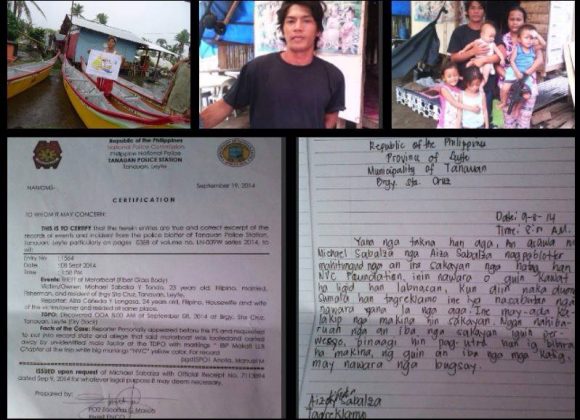 Republic of the Philippines
National Police Commission
Philippine National Police
TANAUAN POLICE STATION
Tanauan, Leyte
September 19, 2014
CERTIFICATION
TO WHOM IT MAY CONCERN:
THIS IS TO CERTIFY that the herein entries are true and correct excerpt of the
records of events and incident from the police blotter of Tanauan Police Station,
Tanauan, Leyte particularly on pages 0388 of volume no. series 2014, to
wit:
Entry No: 1564
Date: 08 Sept 2014
Time: PM
Events: THEFT of Motorboat (Fiber Glass Body)
Victim/Owner: Michael Sabalza Y 35 years old, Filipino, married,
Fisherman, and residen of Brgy Sta Cruz, Tanauan, Leyte.
Reporter: Aiza Caneda Y Longasa, 24 years old, Filipino, Housewife and wife
of the victim/owner and resident at same place.
TDPO: Discovered OOA 8:00 AM of September 08, 2014 at Brgy. Sta. Cruz,
Tanauan, Leyte (Sea Dock)
Facts of the Case: Reporter Personally appeared before this PS and requested
to put into record that and allege that said motorboat was loosled and carried
away by unidentified male person at the TDPO with markings " BP Makati LLR
Chapter at the two white big markings "NVC" yellow color. For record.
Manuel M
Issued upon request of Michael Sabalza with Official Receipt No. 7113894
dated Sep 9, 2014 for whatever legal purpose it may deem necessary.
Republic of the Philippines
Province of Leyte
Municipality of Tanauan
Brgy. Sta. Cruz
Date: 9-8-14
Time: 8: AM.
Yana nga takna han aga, an asawa ni
Michael Sabalza nga Aiza Sabalza nagpablotter
mahitungod nga an ira sakayan nga hatag han
NVC Foundation, iein nawara o guin kawat
ha ligid han labnasan, kun diin naka dunggo
Sumala han tagreklamo ine iya nasabutan nga
nawara yana la nga aga. Ine may-ada ka-
lakip nga makina hin sakayan. Nga nahiba-
ruan nga an iba nga sakayan guin per-
wesyo, pinaagi hin pag-utod han ig bibira
ha makina, ng guin an iba nga mga katig,
may nawara nga bugsay.
Aiza Sabalza
Tagreklamo